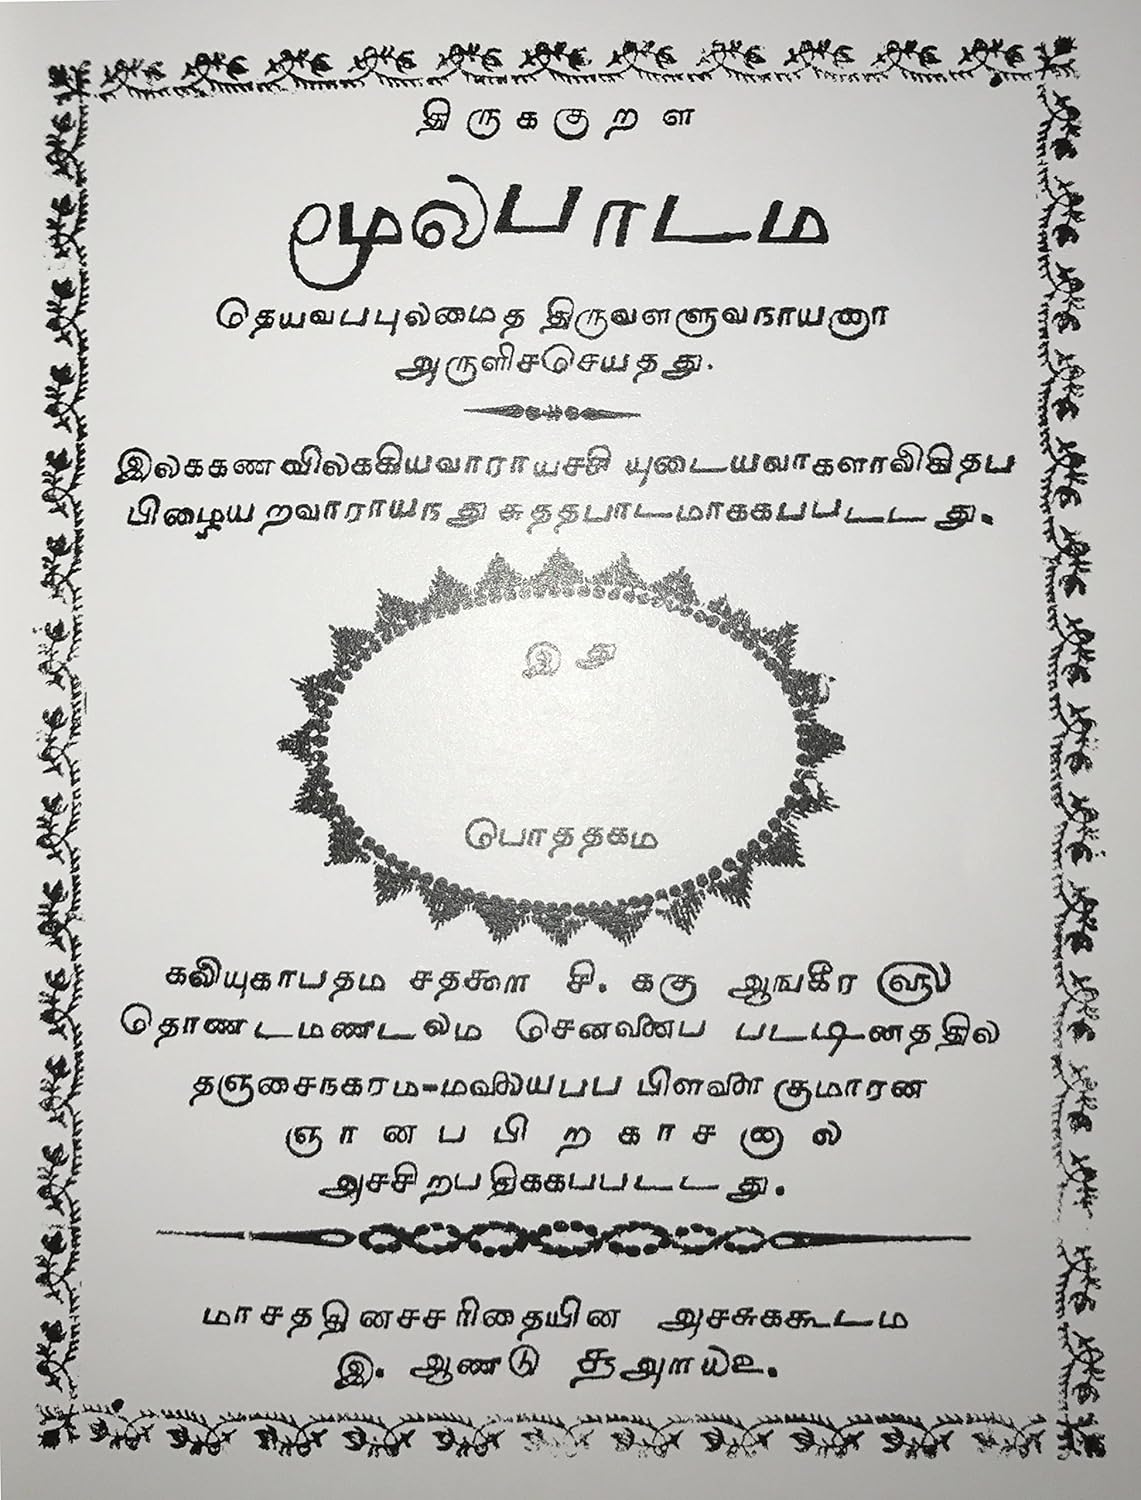 திருககுறள
மூலபாடம
தெயவபபுலமைத திருவளளுவநாயனா
அருளிசசெயதது.
இலககணவிலககியவாராயசசி யுடையவாகளாலிகிதப
பிழையறவாராயநது சுததபாடமாககபபடடது.
இது
பொததகம
கலியுகாபதம ௪௲௯௱௰௩ ஆஙகீர ௵
தொணடமணடலம செனனப படடினததில
தஞசைநகரம-மலையபப பிளளை குமாரன
ஞானபபிறகாசனால
அசசிறபதிககபபடடது.
மாசததினசசரிதையின அசசுககூடம
இ. ஆணடு ௲௮௱௰௨.